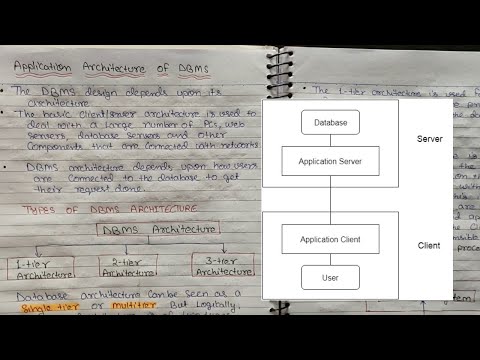 Application Architecture of DBMS
The DBMS design depends upon its
architecture.
The basic client/server architecture is used to
deal with a large number of PCs, web
servers, database servers and other
components that are connected with networks.
DBMS architecture depends upon how users
are connected to the database to get
their request done.
TYPES OF DBMS ARCHITECTURE
DBMS Architecture
1-tier
Architecture
2-tier
Architecture
3-tier
Architecture
Database architecture can be seen as a
single tier or multitier. But logically,
The 1-tier architecture is used f
Database
Application Server
Server
Application Client
User
Client